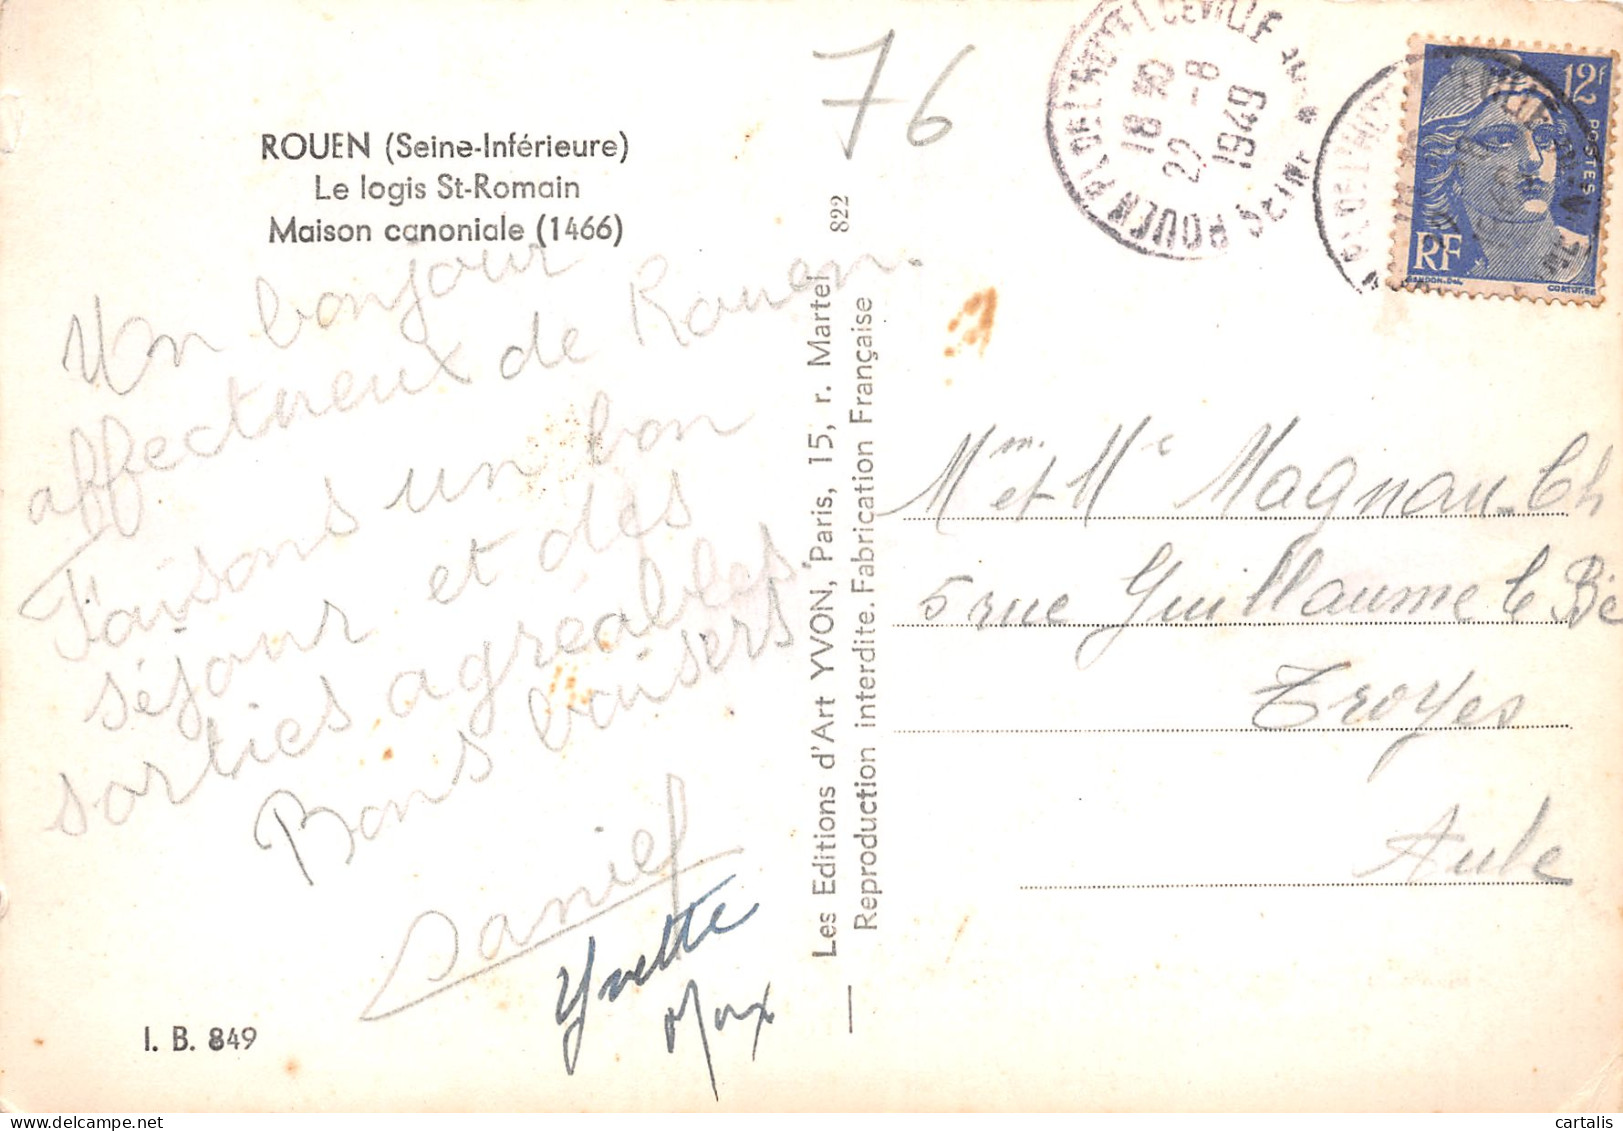 ROUEN (Seine-Inférieure)
Le logis St-Romain
Maison canoniale (1466)
76
Un bonjour
affectueux de Rouen.
Faisons un bon
séjour et des
sorties agréables
Bons baisers
Daniel
Yvette
Max
I. B. 849
Les Editions d'Art YVON, Paris, 15, r. Martel 822
Reproduction interdite. Fabrication Française
ROUEN PL. DE L'HOTEL DE VILLE
18 30
22 -8
1949
SEINE INFRE
12f
POSTES
RF
GANDON. Del.
CORTOT. SC
Mm. et Me Magnan-Ch
5 rue Guillaume le Bé
Troyes
Aube
cartalis
delcampe.net